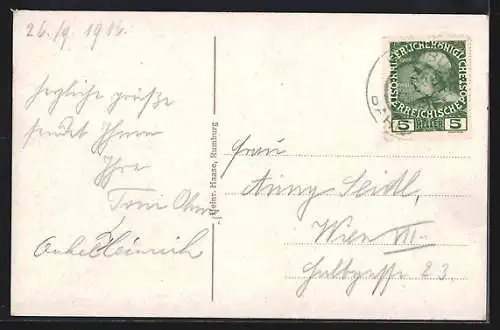 26./9. 1916.
herzliche Grüße
sendet Ihnen
Ihre
Toni
Onkel Heinrich
Heinr. Haase, Rumburg
KAISERLICHE KÖNIGLICHE
ÖSTERREICHISCHE POST
5 HELLER 5
Frau
Anny Seidl,
Wien VII.
Halbgasse 23.